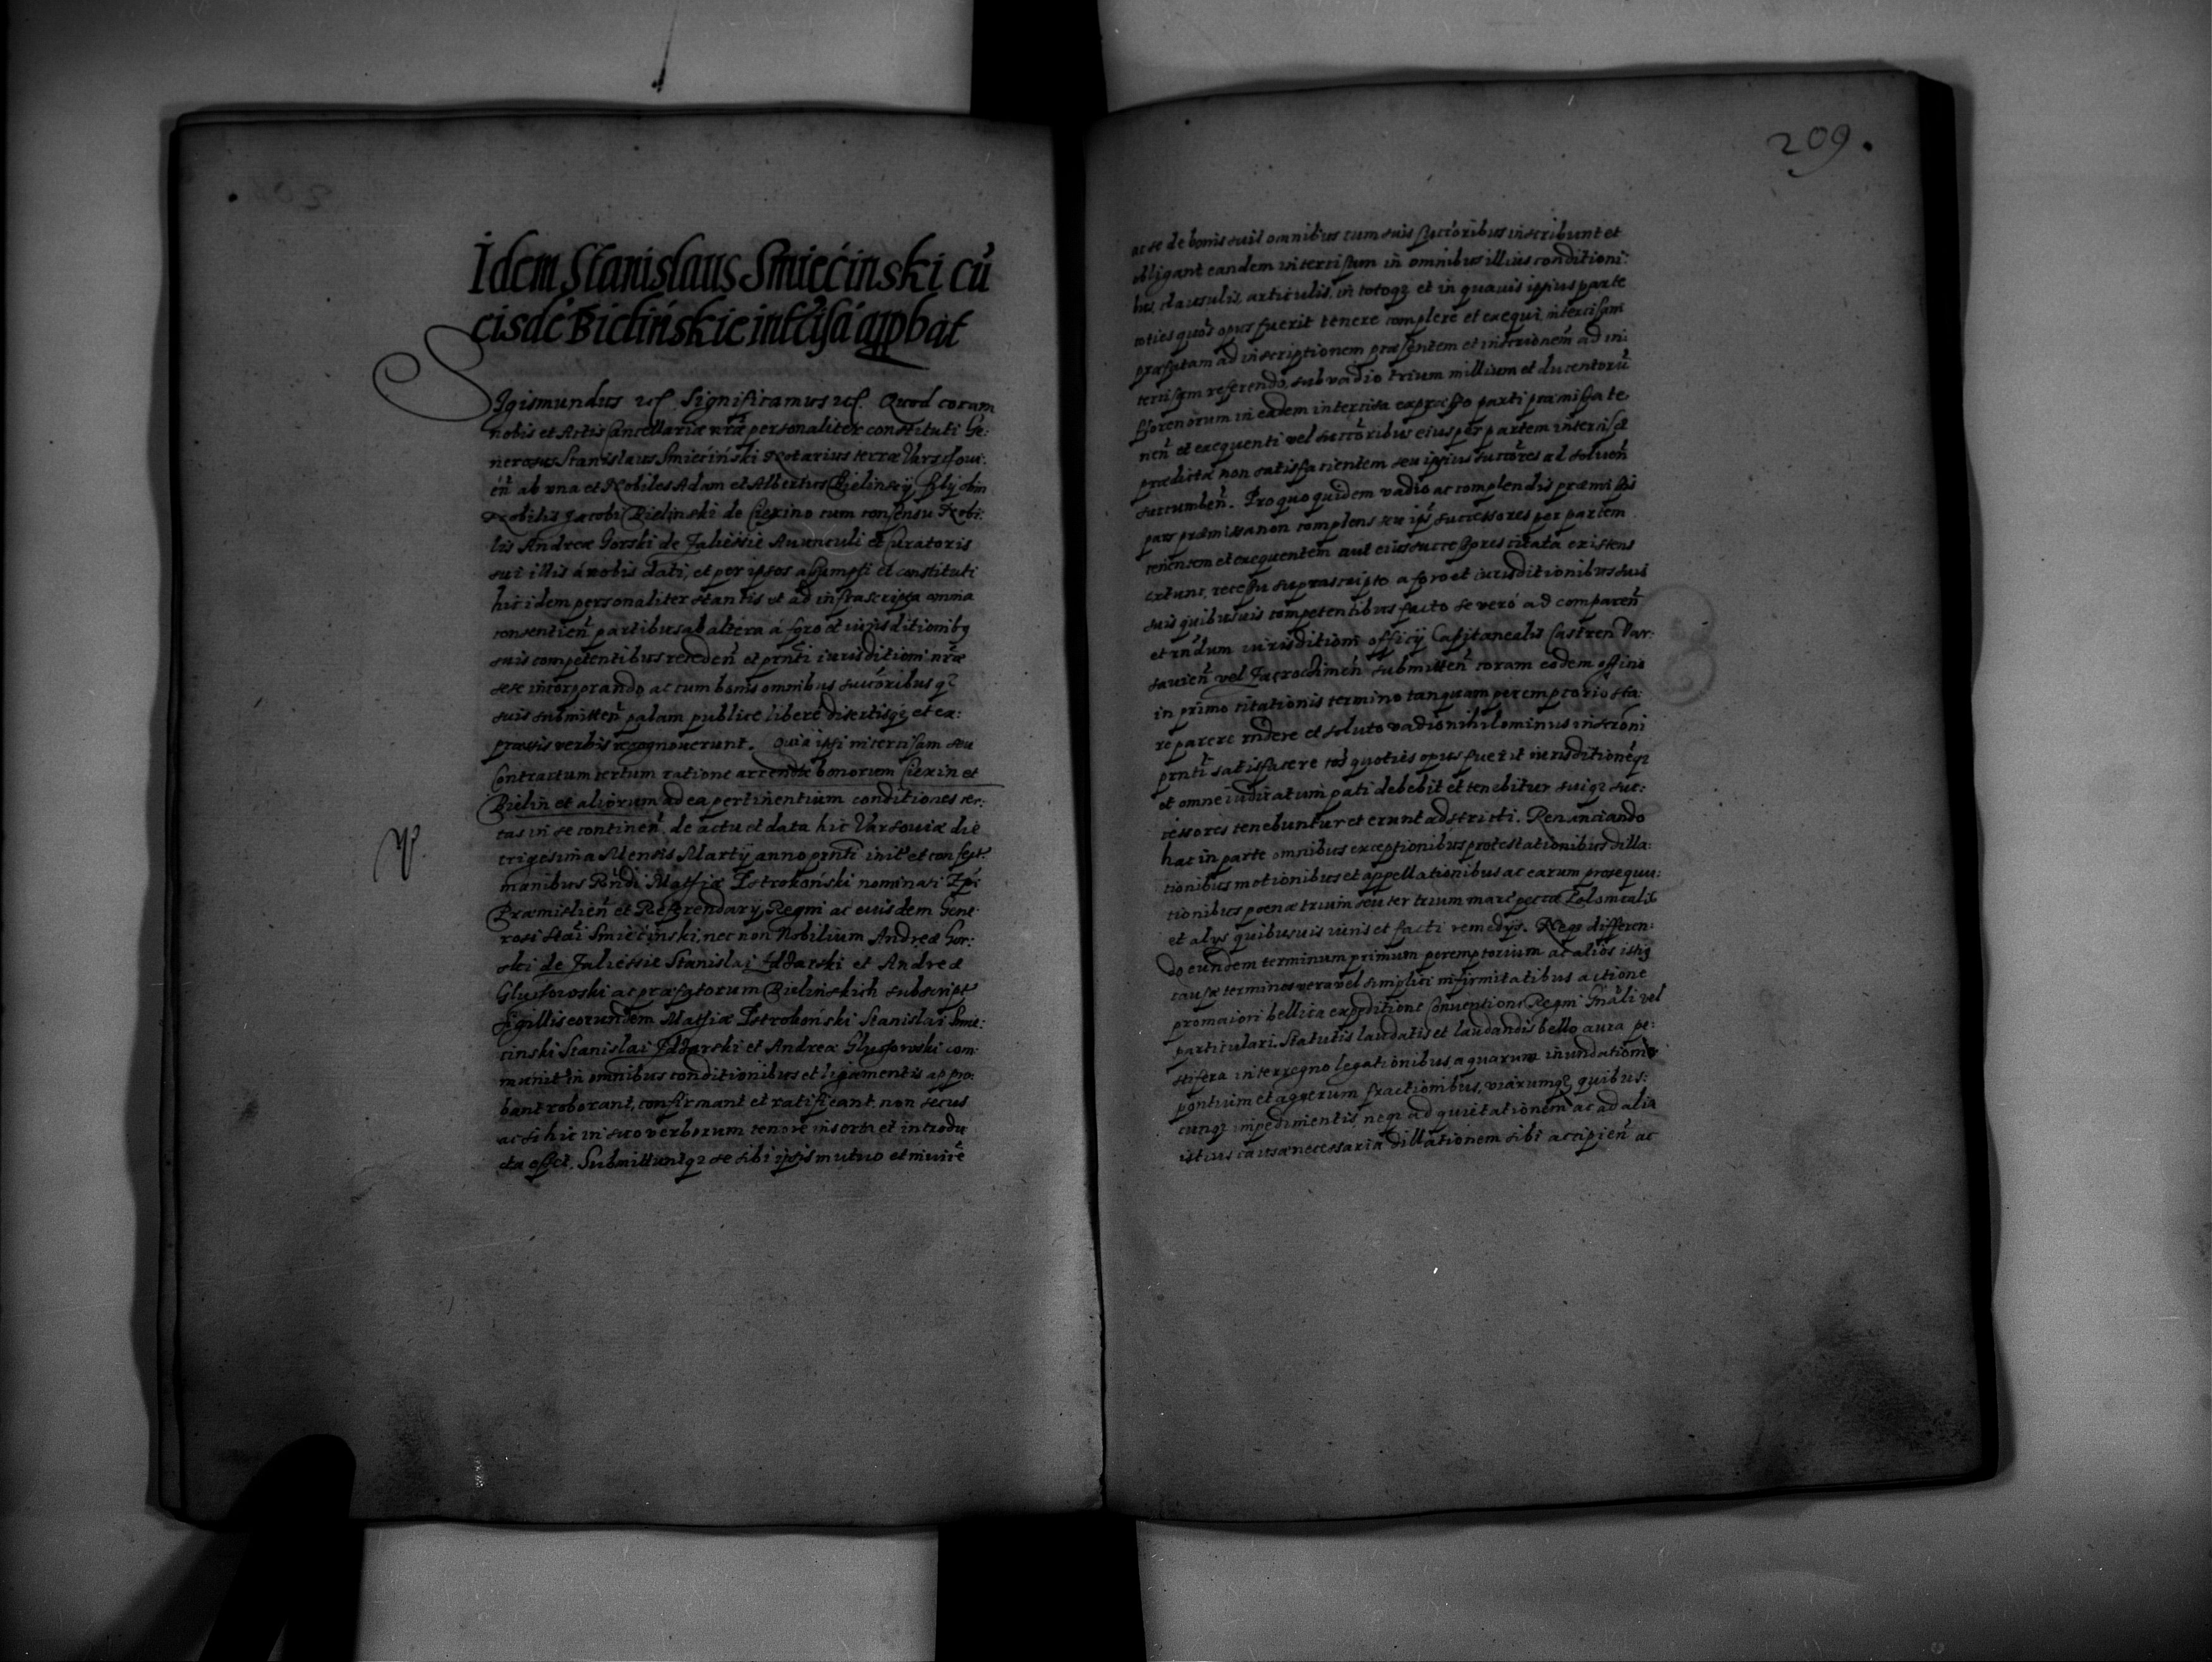 Idem Stanislaus Smiećinski cū
eisdē Bielińskie intcīsā appbat
Sigismundus etc. Significamus etc. Quod coram
nobis et Actis Cancellariæ nræ personaliter constituti Ge:
nerosus Stanislaus Smiećiński Notarius terræ Varschoui:
eñ ab vna et Nobiles Adam et Albertus Bielinscij, filij olim
Nobilis Jacobi Bielinski de Ciexino cum consensu Nobi:
lis Andreæ Gorski de Avunculi et Curatoris
sui illis á nobis dati, et per ipsos assumpti et constituti
hic idem personaliter stantis et ad infrascripta omnia
consentieñ partibus ab altera á foro et iurisditionibq
suis competentibus recedeñ et prnti iurisditioni nræ
sese incorporando ac cum bonis omnibus succoribus q3
suis submitteñ palam publice libere disertisq3 et ex:
pressis verbis recognouerunt. Quia ipsi intercisam seu
Contractum certum ratione arrendæ bonorum Ciexin et
Bielin et aliorum ad ea pertinentium conditiones cer:
tas in se contineñ, de actu et data hic Varsouiæ die
trigesima Mensis Martij anno prnti init et con fect
manibus Rndi Mathiæ Pstrokoński nominati Epi
Præmislieñ et Referendarij Regni ac eiusdem Gene
rosi Stai Smiećinski, nec non Nobilium Andreæ Gor:
ski de Stanislai et Andreæ
ac præfatorum Bielinskich subscript
sigillis eorundem Mathiæ Pstrokoński Stanislai Smie:
cinski Stanislai et Andreæ com
munit in omnibus conditionibus et ligamentis appro:
bant roborant, confirmant et ratificant, non secus
ac si hic in suo verborum tenore inserta et introdu
cta esset. Submittuntq3 se sibi ipsis mutuo et inuicē
209.
ac se de bonis suis omnibus cum suis succoribus inscribunt et
obligant eandem intercisam in omnibus illius conditioni:
bus, clausulis, articulis, in totoq3 et in quauis ipsius parte
toties quoties opus fuerit tenere complere et exequi, intercisam
præfatam ad inscriptionem præsentem et inscrionem ad in:
tercisam referendo, sub vadio trium millium et ducentorū
florenorum in eadem intercisa expresso parti præmissa te
neñ et exequenti vel succoribus eius per partem intercisæ
prædictæ non satisfacientem seu ipsius succores al solueñ
succumbeñ. Pro quo quidem vadio ac complendis præmissis
pars præmissa non complens seu ips successores per partem
tenentem et exequentem aut eius successores citata existens
extunc, recessu suprascripto a foro et iurisditionibus suis
suis quibusuis competentibus facto se veró ad compareñ
et rndum iurisditioni officij Capitanealis Castreñ Var:
sauieñ vel Zacrochimeñ submitteñ coram eodem officio
in primo citationis termino tanquam peremptorio sta:
re parere rndere et soluto vadio nihilominus inscroni
prnti satisfacere tot quoties opus fuerit iurisditioneq3
et omne iudicatum pati debebit et tenebitur suiq3 suc:
cessores tenebuntur et erunt adstricti. Renunciando
hac in parte omnibus exceptionibus protestationibus dilla:
tionibus motionibus et appellationibus ac earum prosequu:
tionibus poenæ trium seu ter trium marc pecca Polonicalis
et alys quibusuis iuris et facti remedijs. Neq3 differen:
do eundem terminum primum peremptorium ac alios istiq
causæ terminos vera vel simplici infirmitatibus actione
pro maiori bellica expeditione Conuentione Regni Gnali vel
particulari. Statutis laudatis et laudandis bello aura pe:
stifera interregno legationibus, aquarum inundationib
pontium et aggerum fractionibus, viarumq3 quibus:
cunq3 impedimentis, neq3 ad quietationem ac ad alia
istius causæ necessaria dillationem sibi accipieñ ac